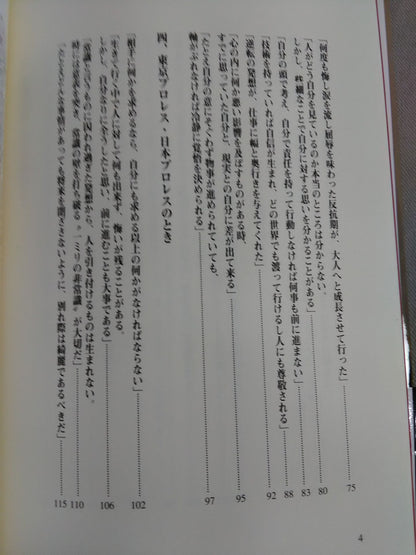 「何度も悔し涙を流し屈辱を味わった反抗期が、大人へと成長させて行った」……75
「人がどう自分を見ているのか本当のところは分からない。
しかし、些細なことで自分に対する思いを分かることがある」……80
「自分の頭で考え、自分で責任を持って行動しなければ何事も前に進まない」……83
「技術を持っていれば自信が生まれ、どの世界でも渡って行けるし人にも尊敬される」……88
「逆転の発想が、仕事に幅と奥行きを与えてくれた」……92
「心の内に何か悪い影響を及ぼすものがある時、
すでに思っていた自分と、現実との自分に差が出て来る」……95
「たとえ自分の意にそぐわず物事が進められていても、
軸がぶれなければ冷静に覚悟を決められる」……97
四、東京プロレス・日本プロレスのとき
「相手に何かを求めるなら、自分にも求める以上の何かがなければならない」……102
「生きて行く中で人に対して何も出来ず、悔いが残ることがある。
しかし、自分なりに全うしたと思い、前に進むことも大事である」……106
「常識というものに囚われ過ぎた発想から、人を引き付けるものは生まれない。
時には意表を突き、常識の壁を打ち破る〝一ミリの非常識〟が大切だ」……110
「たとえどんな事情があっても将来を閉ざさないように、別れ際は綺麗であるべきだ」……115
4